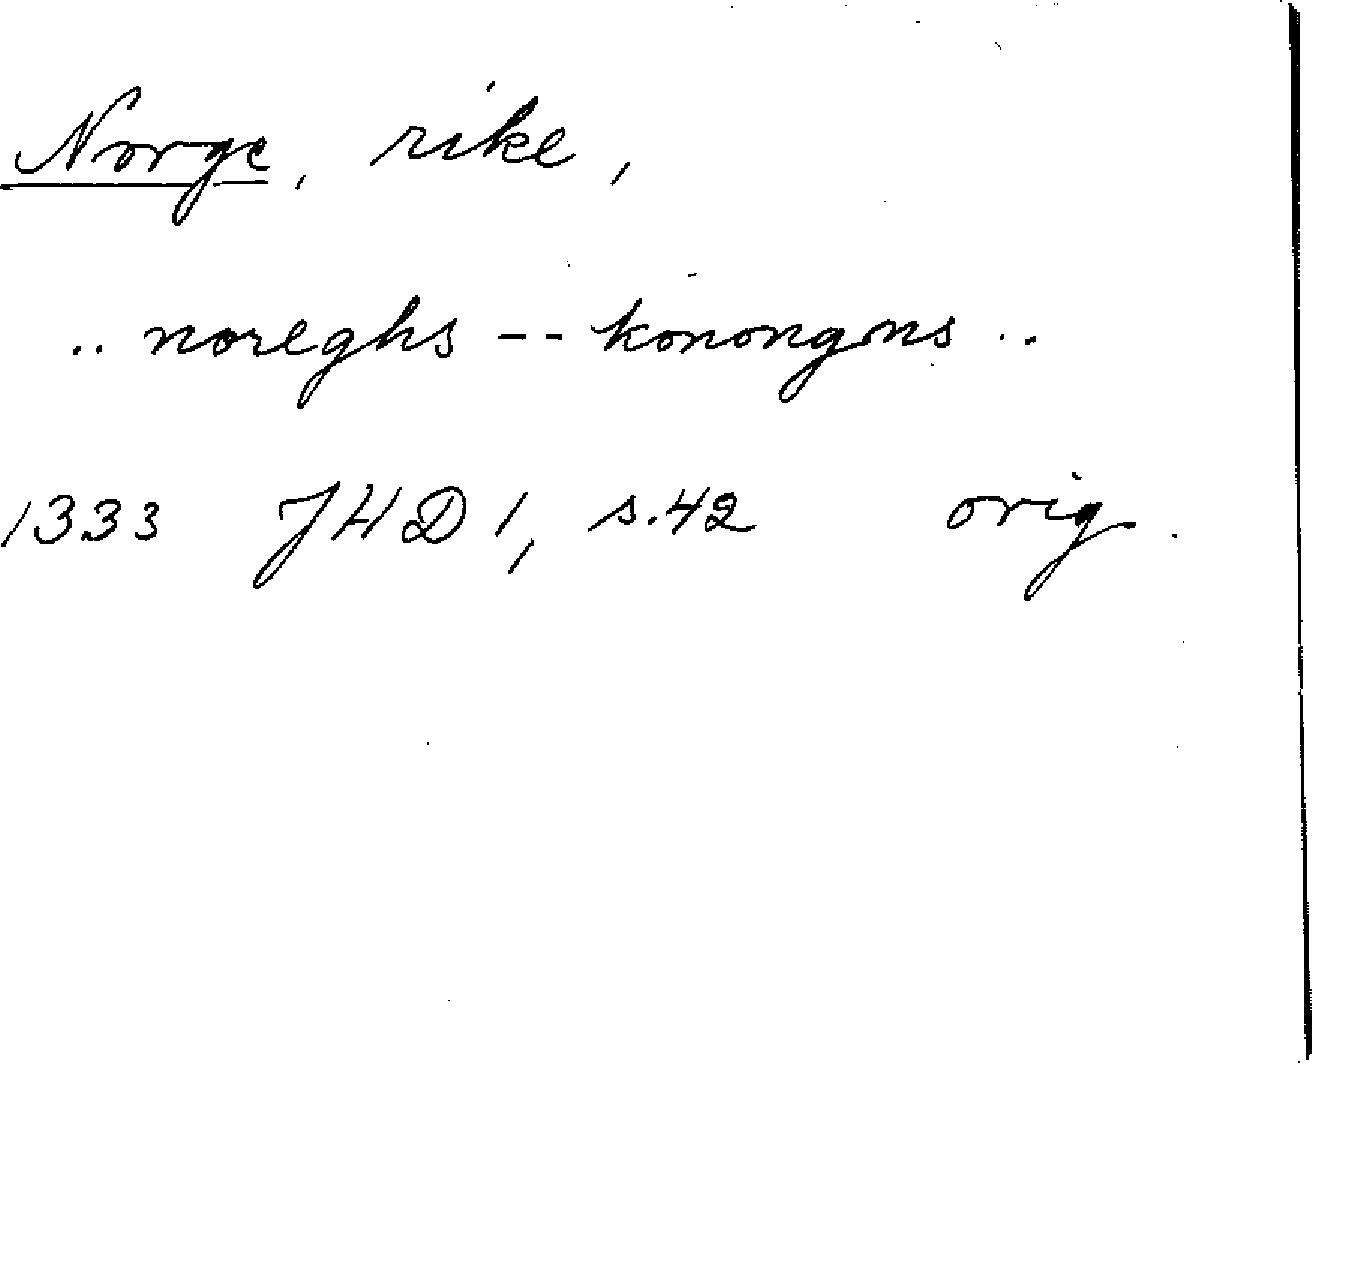 Norge, rike,
.. noreghs -- konongons ..
1333 JHD 1, s.42 orig.